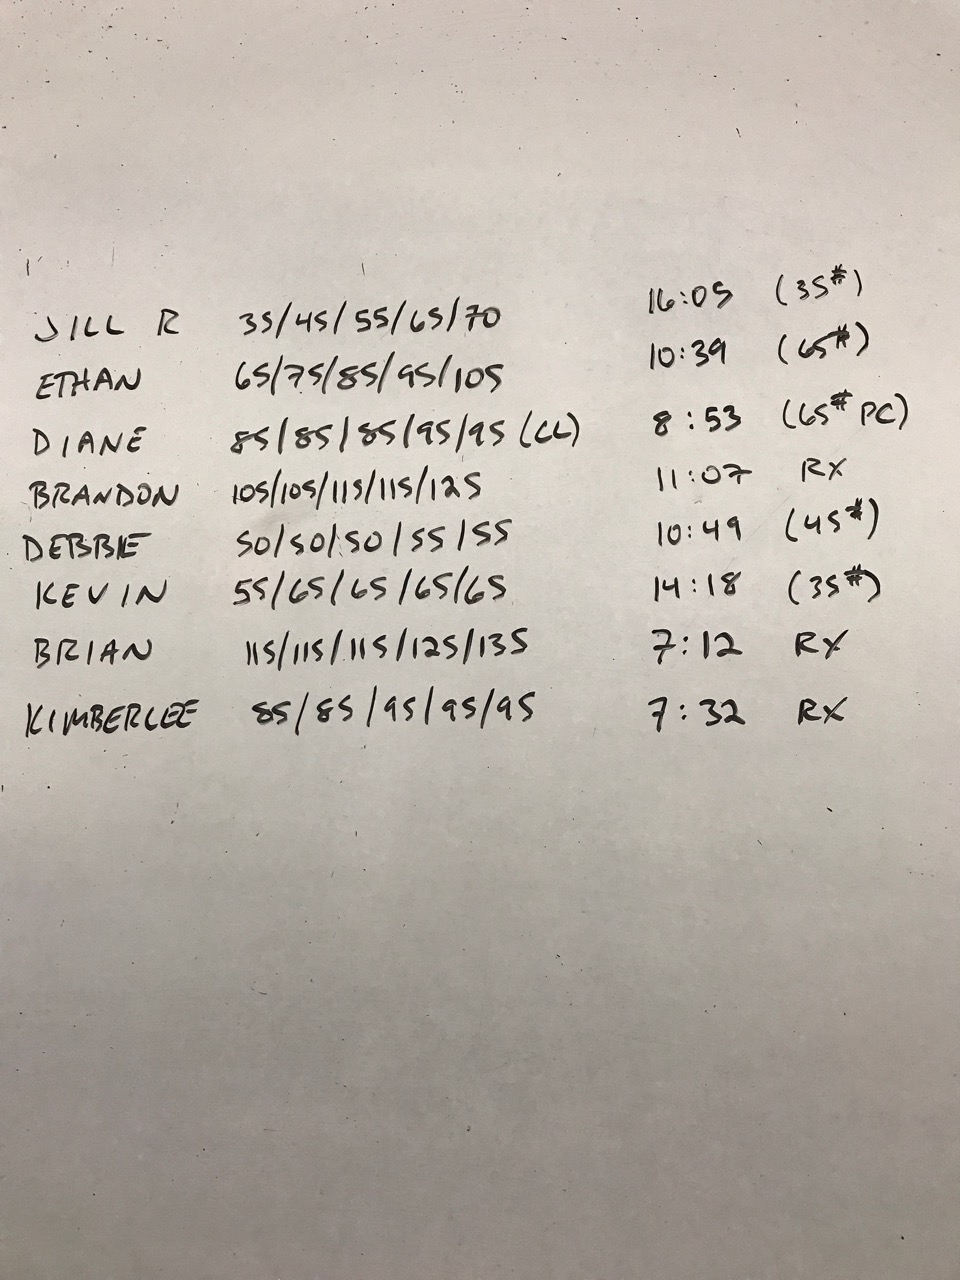 JILL R 35/45/55/65/70 16:05 (35#)
ETHAN 65/75/85/95/105 10:39 (65#)
DIANE 85/85/85/95/95 (CL) 8:53 (65# PC)
BRANDON 105/105/115/115/125 11:07 RX
DEBBIE 50/50/50/55/55 10:49 (45#)
KEVIN 55/65/65/65/65 14:18 (35#)
BRIAN 115/115/115/125/135 7:12 RX
KIMBERLEE 85/85/95/95/95 7:32 RX